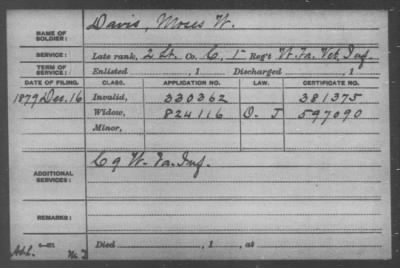 NAME OF SOLDIER: Davis, Moses W.
SERVICE: Late rank, 2 Lt. Co. C, 1 Reg't W. Va. Vet. Inf.
TERM OF SERVICE: Enlisted , 1 Discharged , 1
DATE OF FILING. CLASS. APPLICATION NO. LAW. CERTIFICATE NO.
1879 Dec. 16 Invalid, 330362 381375
Widow, 824116 O. J 597090
Minor,
ADDITIONAL SERVICES: C 9 W. Va. Inf.
REMARKS:
Died , 1 , at